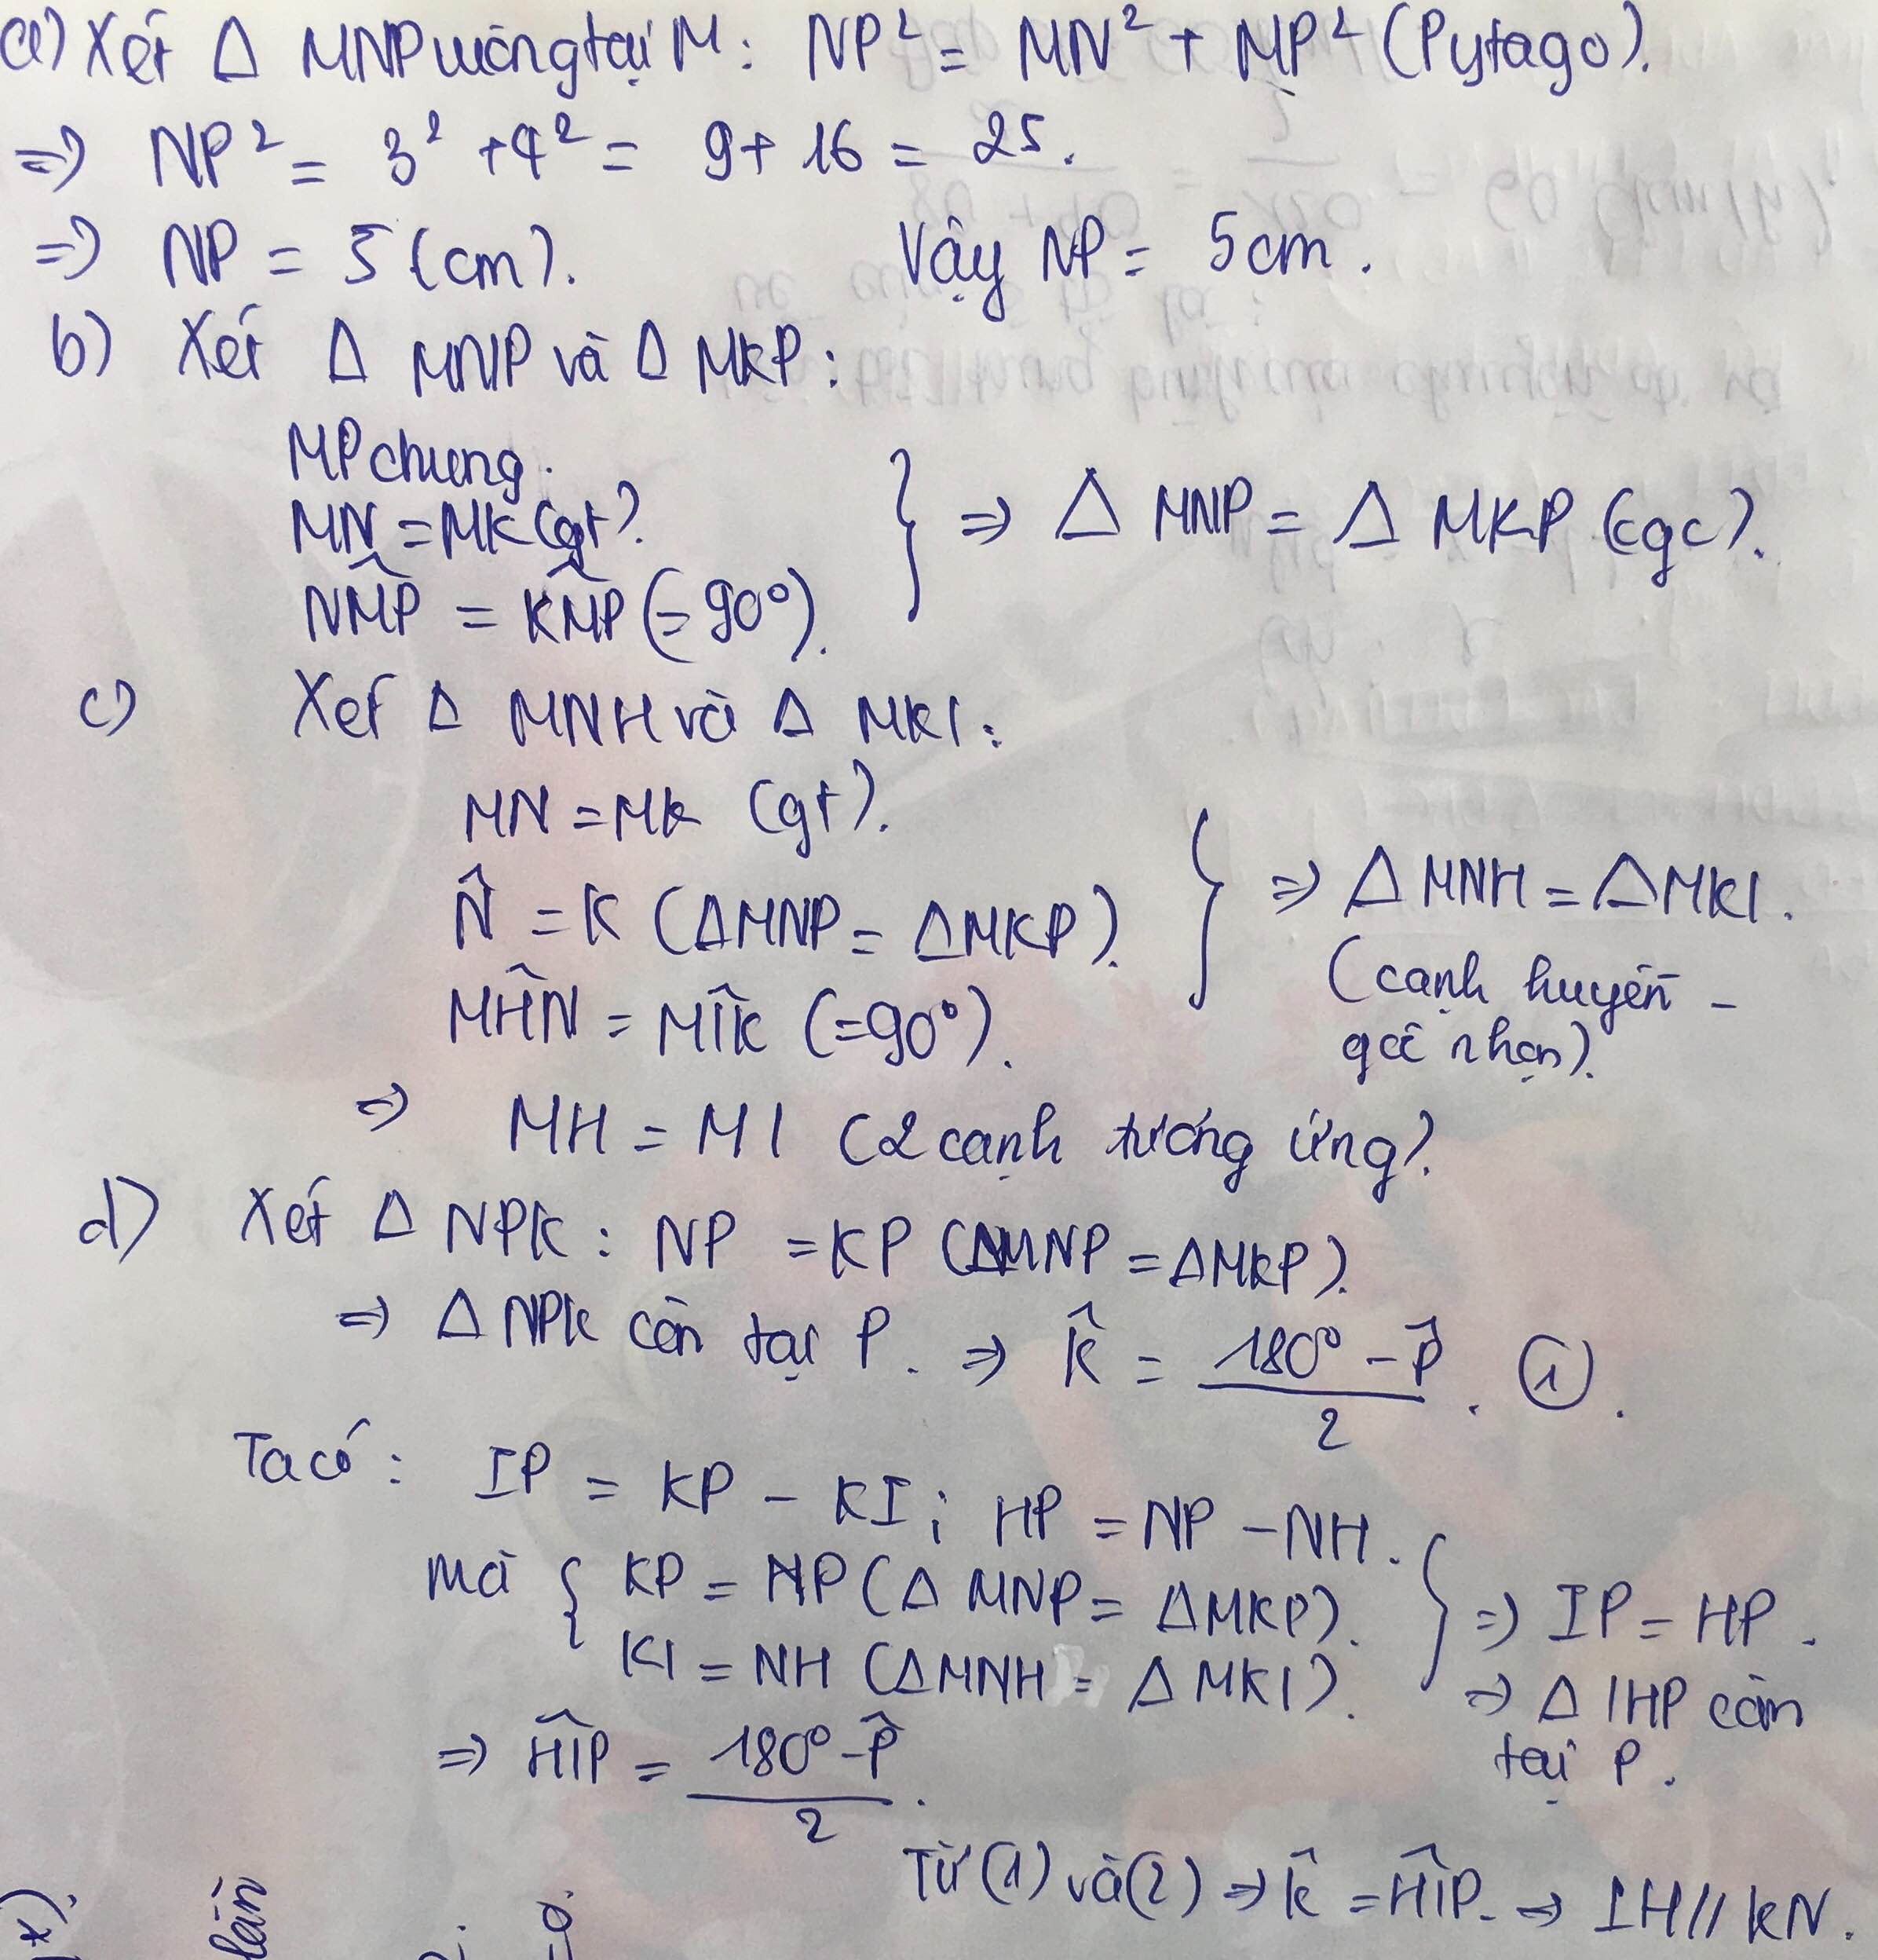 a) Xét Δ MNP vuông tại M: NP² = MN² + MP² (Pytago).
=> NP² = 3² + 4² = 9 + 16 = 25.
=> NP = 5 (cm). Vậy NP = 5cm.
b) Xét Δ MNP và Δ MKP:
MP chung.
MN = MK (gt).
NM̂P = KM̂P (= 90°).
} => Δ MNP = Δ MKP (cgc).
c) Xét Δ MNH và Δ MKI:
MN = MK (gt).
N̂ = K (ΔMNP = ΔMKP).
MĤN = MÎK (=90°).
} => Δ MNH = ΔMKI.
(cạnh huyền -
góc nhọn).
=> MH = MI (2 cạnh tương ứng).
d) Xét Δ NPK: NP = KP (ΔMNP = ΔMKP).
=> Δ NPK cân tại P. => K̂ = (180° - P̂)/2. ①.
Ta có: IP = KP - KI; HP = NP - NH.
Mà { KP = NP (Δ MNP = ΔMKP).
KI = NH (ΔMNH = Δ MKI).
} => IP = HP.
=> Δ IHP cân
tại P.
=> HÎP = (180° - P̂)/2.
Từ (1) và (2) => K̂ = HÎP. => IH // KN.